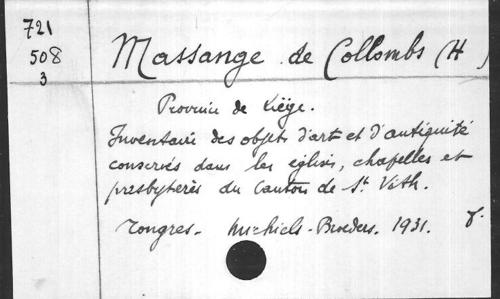 721
508
3
Massange de Collombs (H )
Province de Liège.
Inventaire des objets d'art et d'antiquité
conservés dans les églises, chapelles et
presbytères du Canton de St Vith.
Tongres. Michiels-Broeders. 1931. 8.